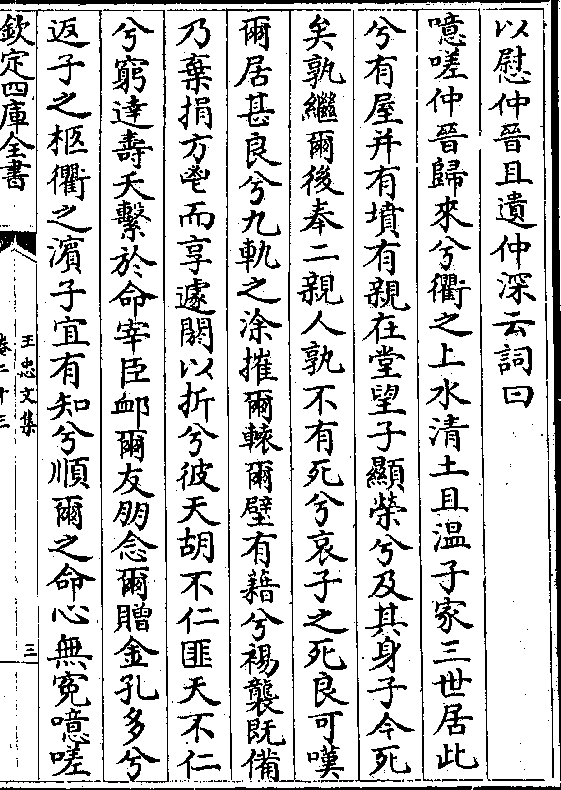 以慰仲晉且遺仲深云詞曰
噫嗟仲晉歸來兮衢之上水清土且溫子家三世居此
兮有屋并有墳有親在堂望子顯榮兮及其身子今死
矣孰繼爾後奉二親人孰不有死兮哀子之死良可嘆
爾居甚良兮九軌之涂摧爾轅爾壁有藉兮裼襲既備
乃棄捐方鬯而享遽闋以折兮彼天胡不仁匪天不仁
兮窮達壽夭繫於命宰臣卹爾友朋念爾贈金孔多兮
返子之柩衢之濱子宜有知兮順爾之命心無寃噫嗟
欽定四庫全書
王忠文集
卷二十三
三